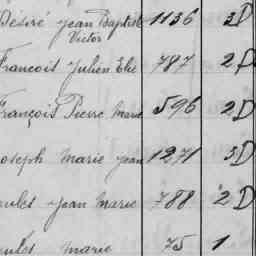 Désiré Jean Baptiste 1136 3D
Victor
Francois Julien Elie 787 2D
François Pierre Marie 596 2D
oseph Marie Jean 1271 3D
ules Jean Marie 788 2D
Marie 75 1